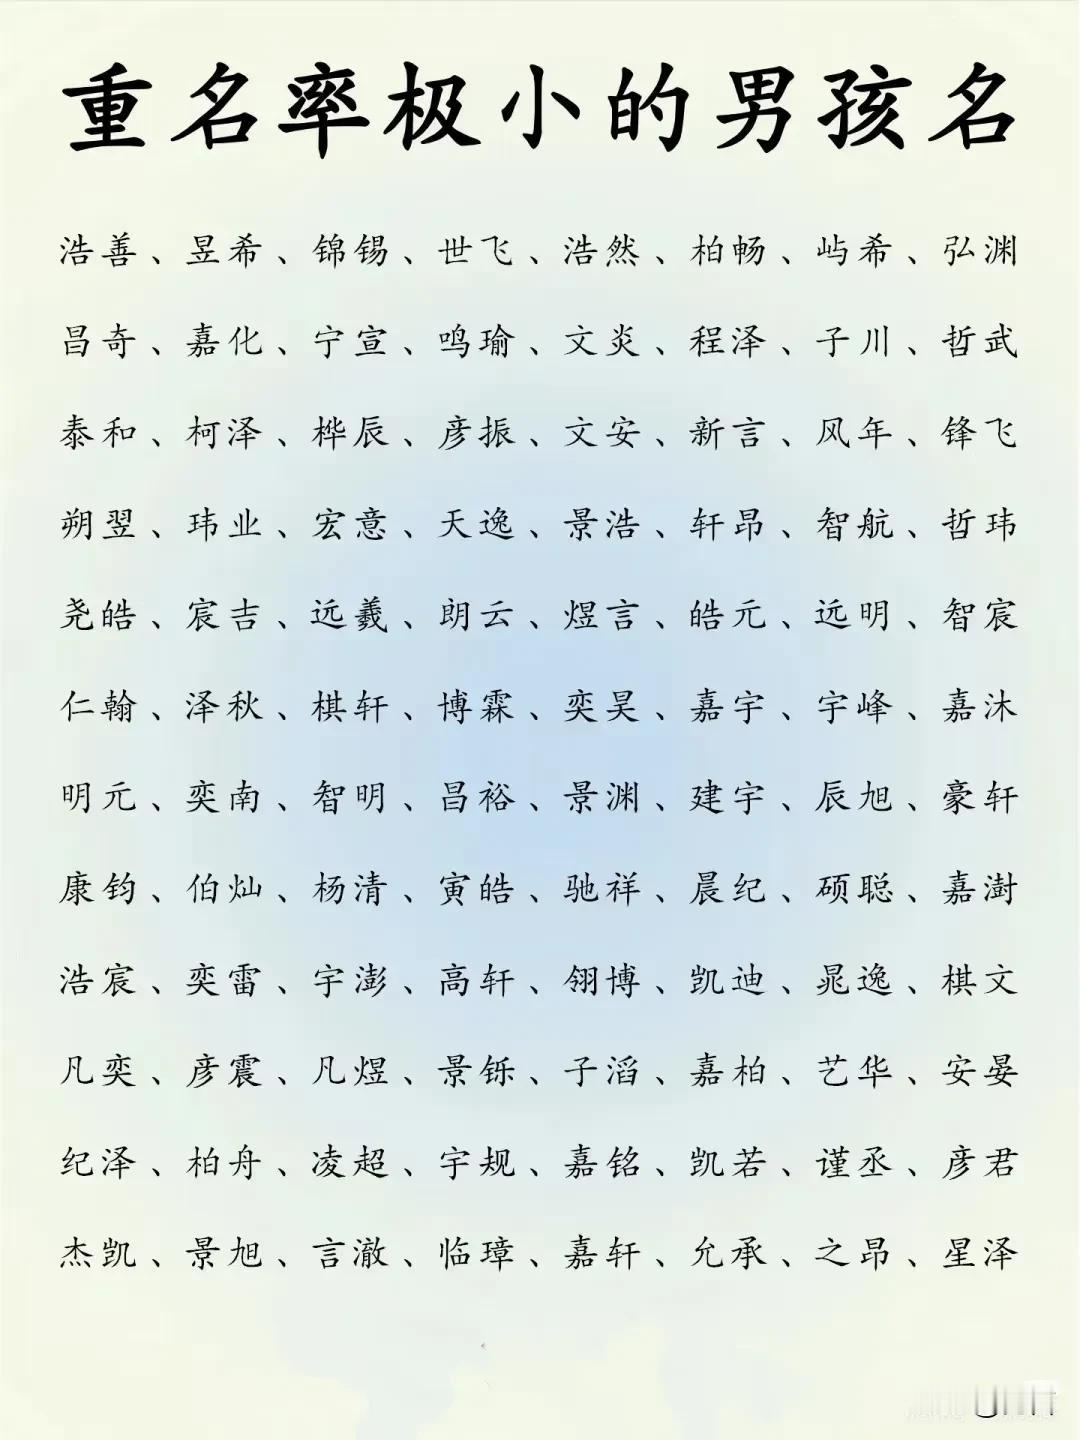 重名率极小的男孩名
浩善、昱希、锦锡、世飞、浩然、柏畅、屿希、弘渊
昌奇、嘉化、宁宣、鸣瑜、文炎、程泽、子川、哲武
泰和、柯泽、桦辰、彦振、文安、新言、风年、锋飞
朔翌、玮业、宏意、天逸、景浩、轩昂、智航、哲玮
尧皓、宸吉、远羲、朗云、煜言、皓元、远明、智宸
仁翰、泽秋、棋轩、博霖、奕昊、嘉宇、宇峰、嘉沐
明元、奕南、智明、昌裕、景渊、建宇、辰旭、豪轩
康钧、伯灿、杨清、寅皓、驰祥、晨纪、硕聪、嘉澍
浩宸、奕雷、宇澎、高轩、翎博、凯迪、晁逸、棋文
凡奕、彦震、凡煜、景铄、子滔、嘉柏、艺华、安晏
纪泽、柏舟、凌超、宇规、嘉铭、凯若、谨丞、彦君
杰凯、景旭、言澈、临璋、嘉轩、允承、之昂、星泽